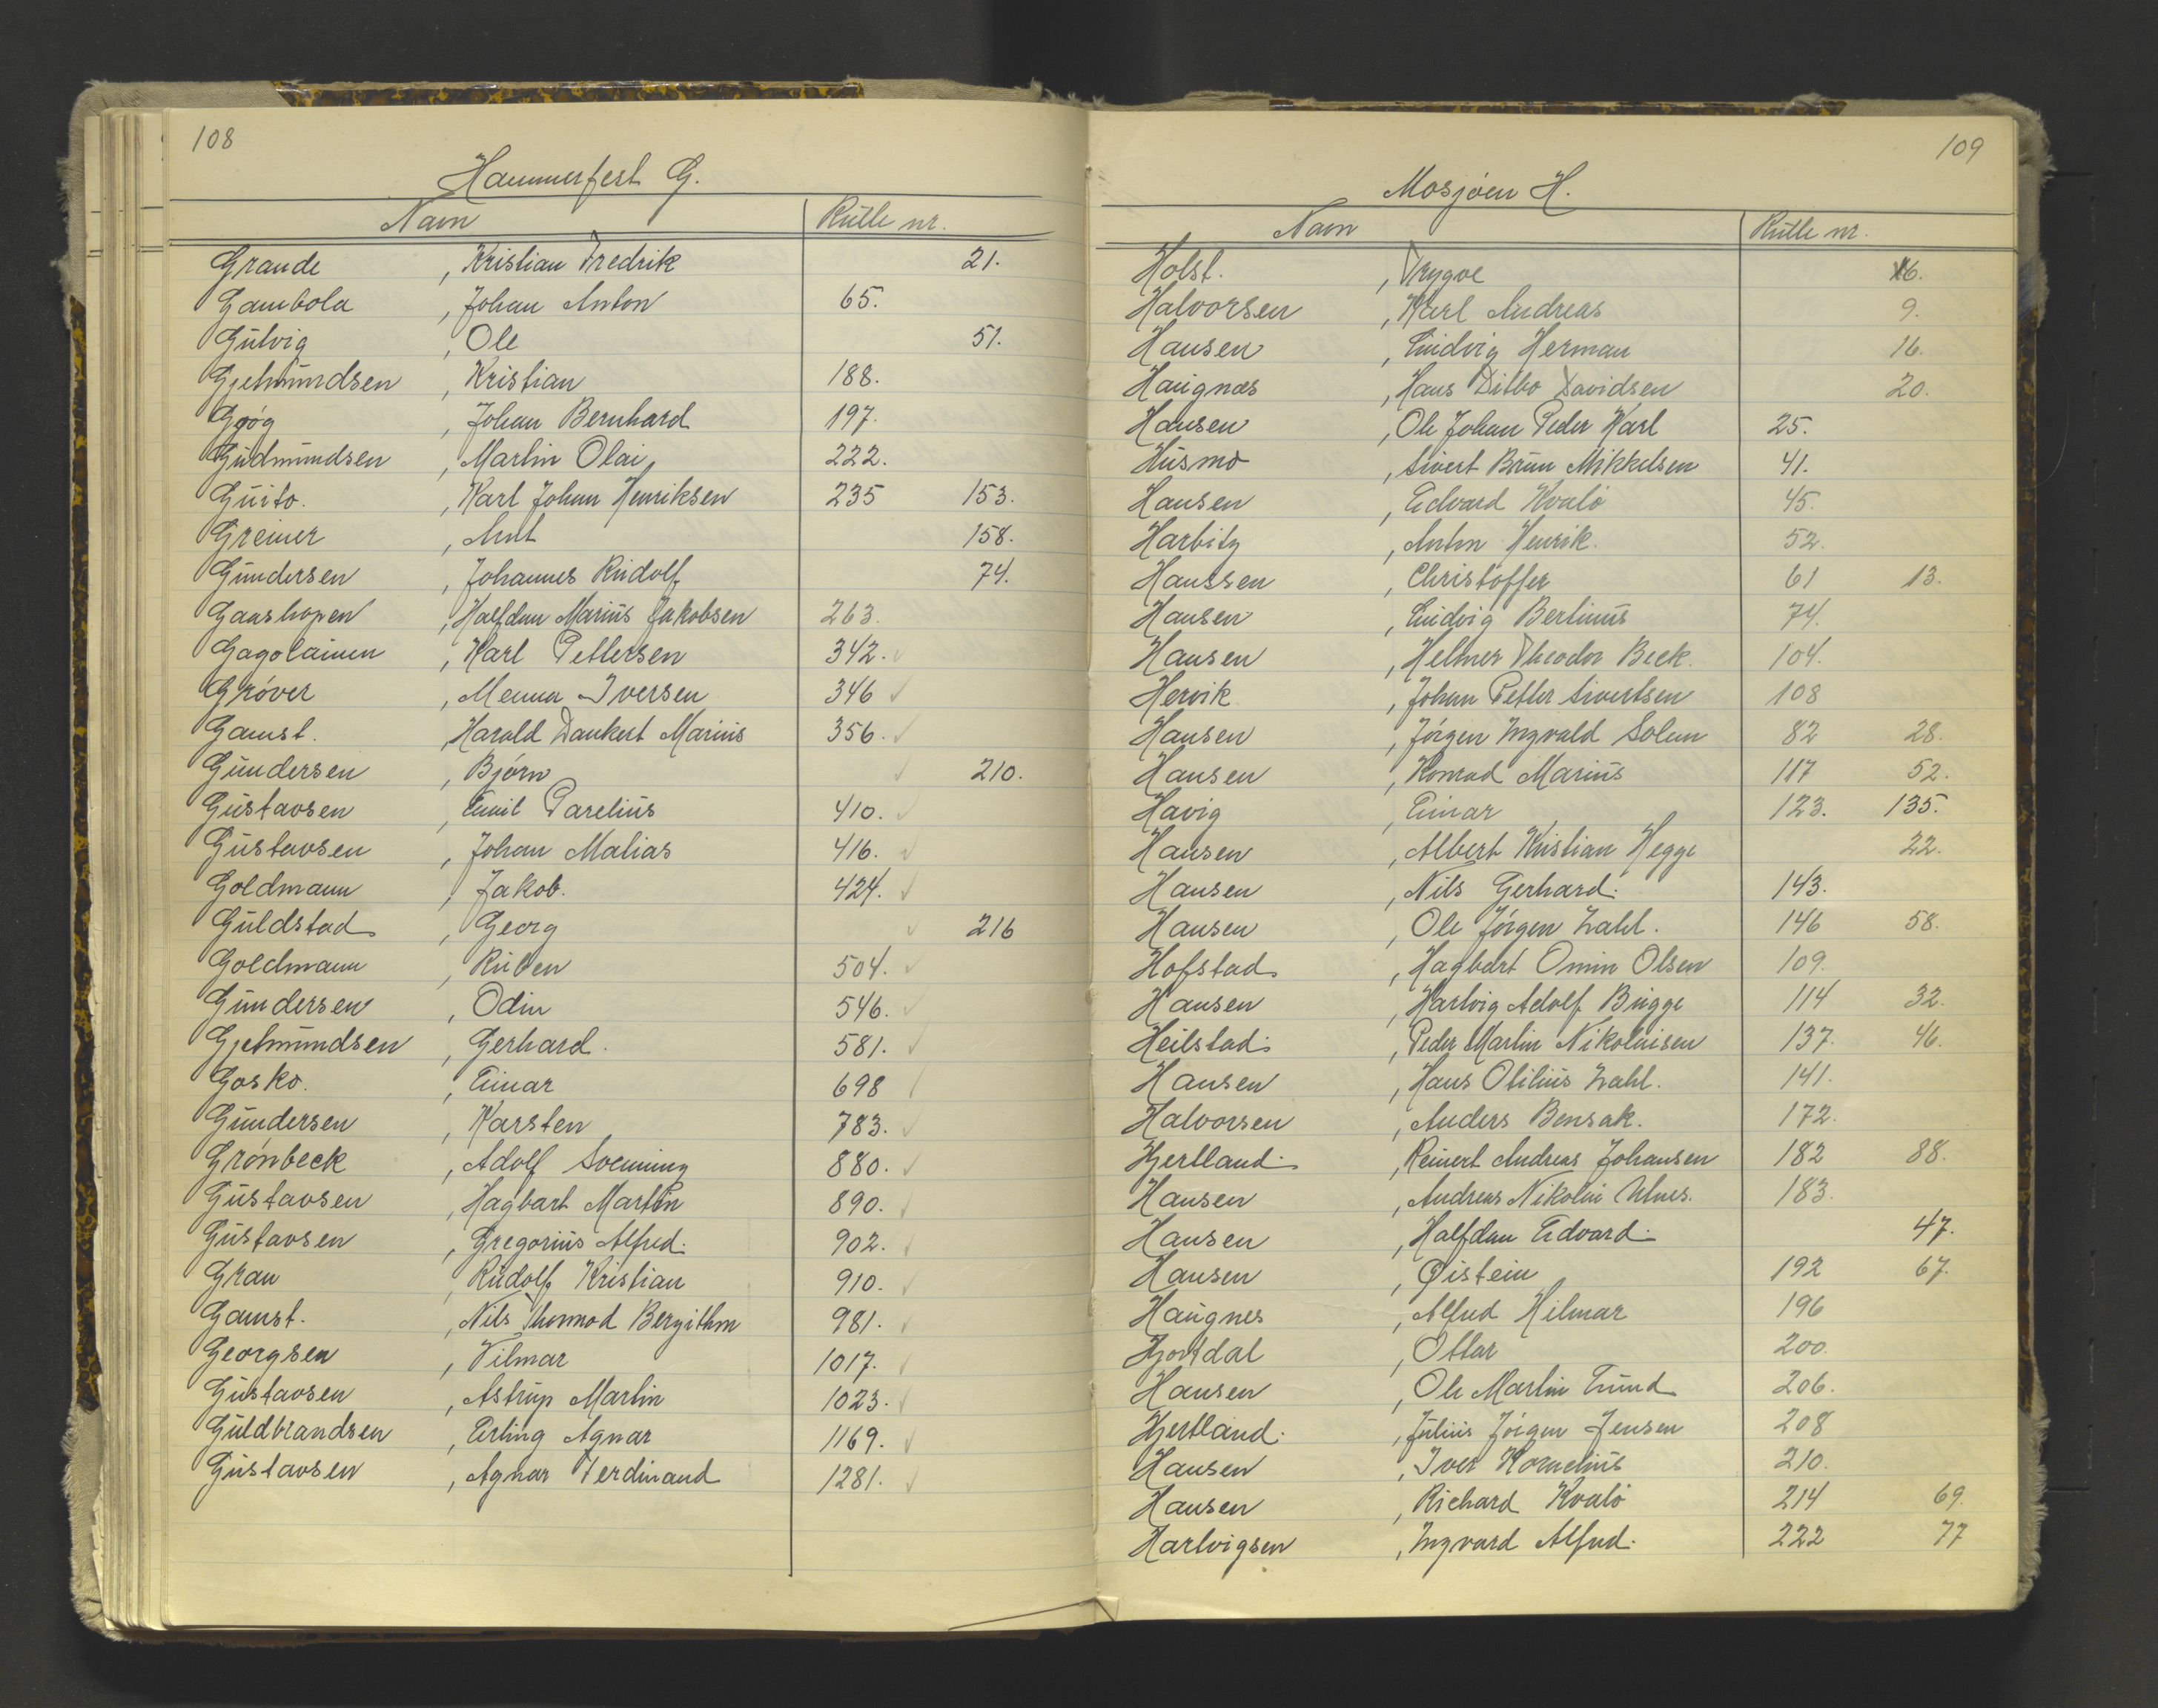 108
Hammerfest G.
Navn Rulle nr.
Grande , Kristian Fredrik 21.
Gambola , Johan Anton 65.
Gulvig , Ole 51.
Gjetmundsen , Kristian 188.
Gjøg , Johan Bernhard 197.
Gudmundsen , Martin Olai 222.
Guito. , Karl Johan Henriksen 235 153.
Greiner , Arnt 158.
Gundersen , Johannes Rudolf 74.
Gaashopen , Halfdan Marius Jakobsen 263.
Gagolainen , Karl Pettersen 342. ✓
Grøver , Menna Iversen 346 ✓
Gamst. , Harald Dankert Marius 356. ✓
Gundersen , Bjørn ✓ 210.
Gustavsen , Emil Parelius 410. ✓
Gustavsen , Johan Malias 416. ✓
Goldmann , Jakob. 424. ✓
Guldstad , Georg ✓ 216
Goldmann , Ruben 504. ✓
Gundersen , Odin 546. ✓
Gjetmundsen , Gerhard. 581. ✓
Gosko. , Einar 698 ✓
Gundersen , Karsten 783. ✓
Grønbeck , Adolf Svenning 880. ✓
Gustavsen , Hagbart Martin 890. ✓
Gustavsen , Gregorius Alfred. 902. ✓
Grau , Rudolf Kristian 910. ✓
Gamst. , Nils Thormod Bergithon 981. ✓
Georgsen , Vilmar 1017. ✓
Gustavsen , Astrup Martin 1023. ✓
Guldbrandsen , Erling Agnar 1169. ✓
Gustavsen , Agnar Ferdinand 1281. ✓
109
Mosjøen H.
Navn Rulle nr.
Holst. , Trygve 6.
Halvorsen , Karl Andreas 9.
Hansen , Ludvig Herman 16.
Haugnæs , Hans Ditbo Davidsen 20.
Hansen , Ole Johan Peder Karl 25.
Husmo , Sivert Brun Mikkelsen 41.
Hansen , Edvard Kvalø 45.
Harbitz , Anton Henrik. 52.
Hanssen , Christoffer 61 13.
Hansen , Ludvig Bertinus 74.
Hansen , Helmer Theodor Beck. 104.
Hervik , Johan Petter Sivertsen 108
Hansen , Jørgen Ingvald Solem 82 28.
Hansen , Konrad Marius 117 52.
Havig , Einar 123. 135.
Hansen , Albert Kristian Hegge 22.
Hansen , Nils Gerhard. 143.
Hansen , Ole Jørgen Zahl. 146 58.
Hofstad , Hagbart Omin Olsen 109.
Hansen , Hartvig Adolf Brügge 114 32.
Heilstad. , Peder Martin Nikolaisen 137. 46.
Hansen , Hans Otilius Zahl. 141.
Halvorsen , Anders Bensak. 172.
Hjertland. , Reinert Andreas Johansen 182 88.
Hansen , Andreas Nikolai Ulnes. 183.
Hansen , Halfdan Edvard. 47.
Hansen , Øistein 192 67.
Haugnes , Alfred Hilmar 196
Hjortdal , Ottar 200.
Hansen , Ole Martin Lund 206.
Hjertland. , Julius Jørgen Jensen 208
Hansen , Iver Kornelius 210.
Hansen , Richard Kvalø 214 69.
Hartvigsen , Ingvard Alfred. 222 77